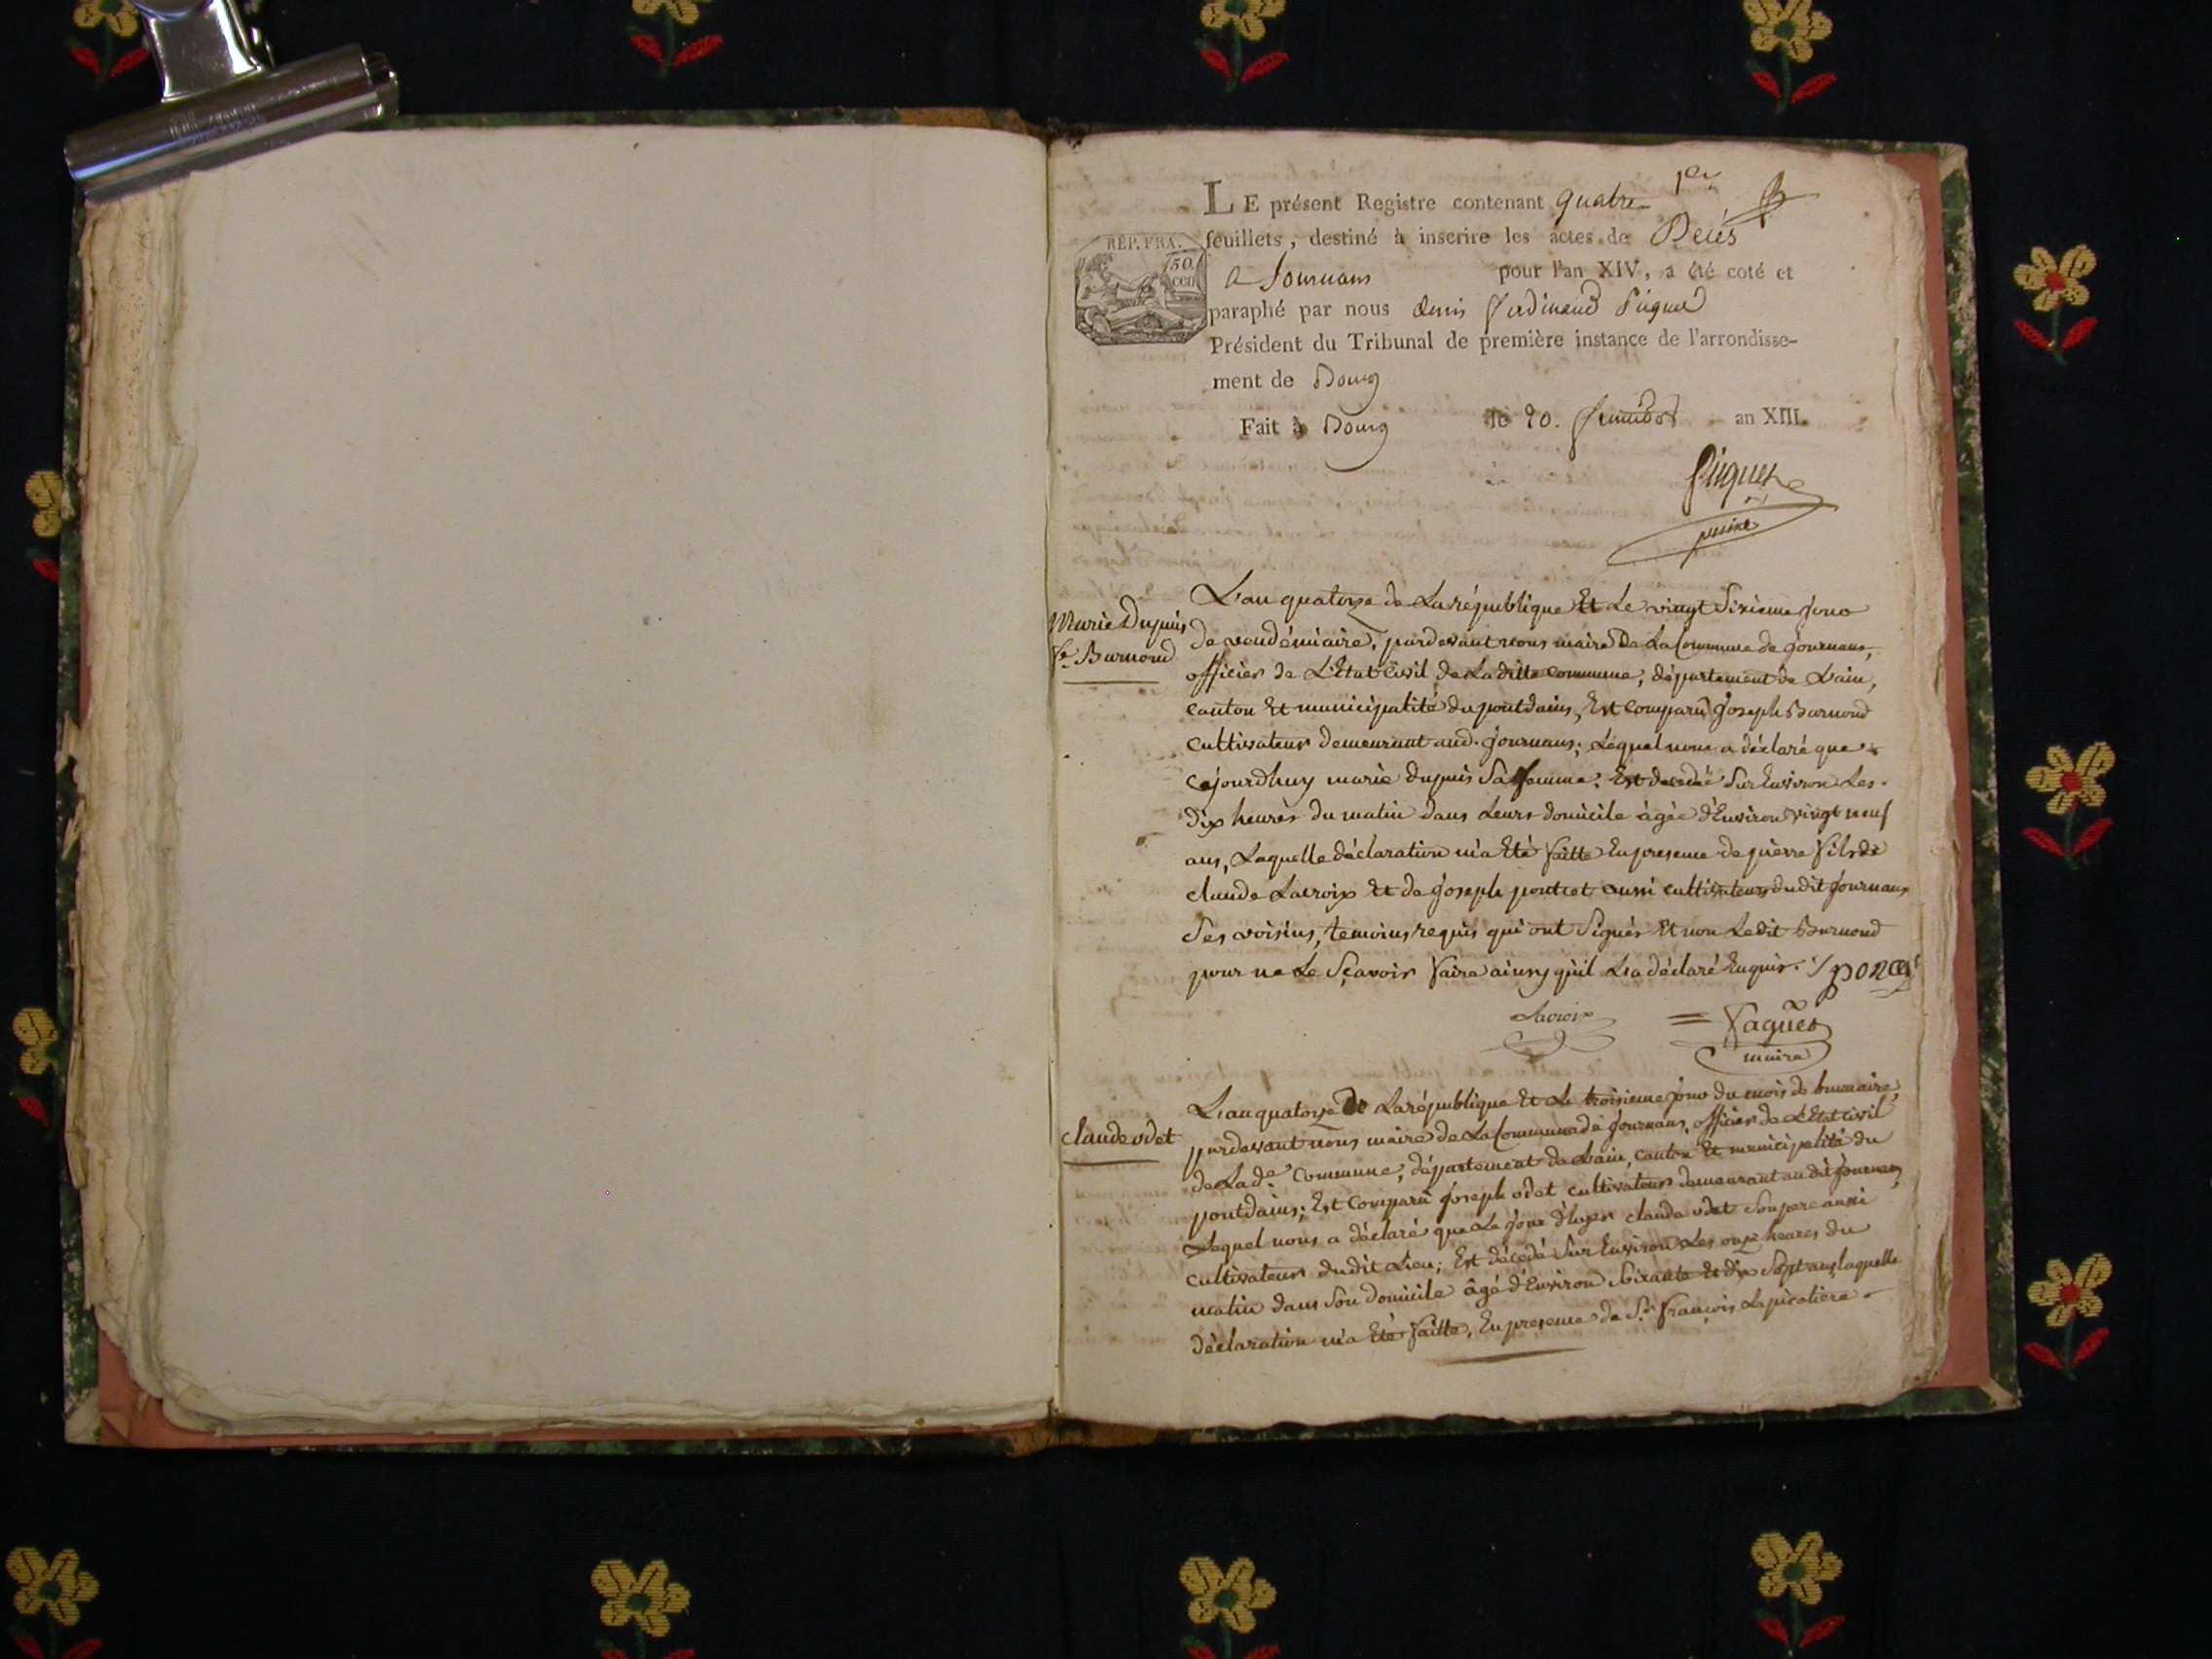 1er
LE présent Registre contenant quatre
feuillets, destiné à inscrire les actes de Decés
REP. FRA.
50.
cen
a Journans pour l'an XIV, a été coté et
paraphé par nous denis ferdinand Piquet
Président du Tribunal de première instance de l'arrondisse-
ment de Bourg
Fait à Bourg le 20. fructidor an XIII.
Piquet
L'an quatorze de La république Et Le vingt Sixieme jour
Marie Dupuis
fe. Burnond
de vendémiaire, pardevant nous maire de La Commune de journans,
officier de L'Etat Civil de La ditte commune, département de L'ain,
canton Et municipalité du pontdains, Est Comparu joseph Burnond
cultivateur demeurant aud. journans; Lequel nous a déclaré que
cejourdhuy marie dupuis Sa femme. Est decedée Sur Environ Les
dix heures du matin dans Leurs domicile âgée d'Environ vingt neuf
ans, Laquelle déclaration m'a Eté faitte En presence de pierre fils de
claude Lacroix Et de joseph pontcet aussi cultivateurs dudit journans
Ses voisins, temoins requis qui ont Signés Et non Ledit Burnond
pour ne Le Sçavoir faire ainsy qu'il L'a déclaré Enquis. j poncet
Lacroix
faques
maire
L'an quatorze De La république Et Le troisieme jour du mois de brumaire
claude odet
pardevant nous maire de La Commune de journans, officier de L'Etat civil
de Lade. Commune, département de L'ain, canton Et municipalité du
pontdains; Est Comparu joseph odet cultivateur demeurant au dit journans
Lequel nous a déclaré que Le jour d'hyer claude odet Son pere aussi
cultivateur dudit Lieu; Est décedé Sur Environ Les onze heures du
matin dans Son domicile âgé d'Environ Soixante Et dix Sept ans, laquelle
déclaration m'a Eté faitte, En presence de Sr. françois Lapicotiere